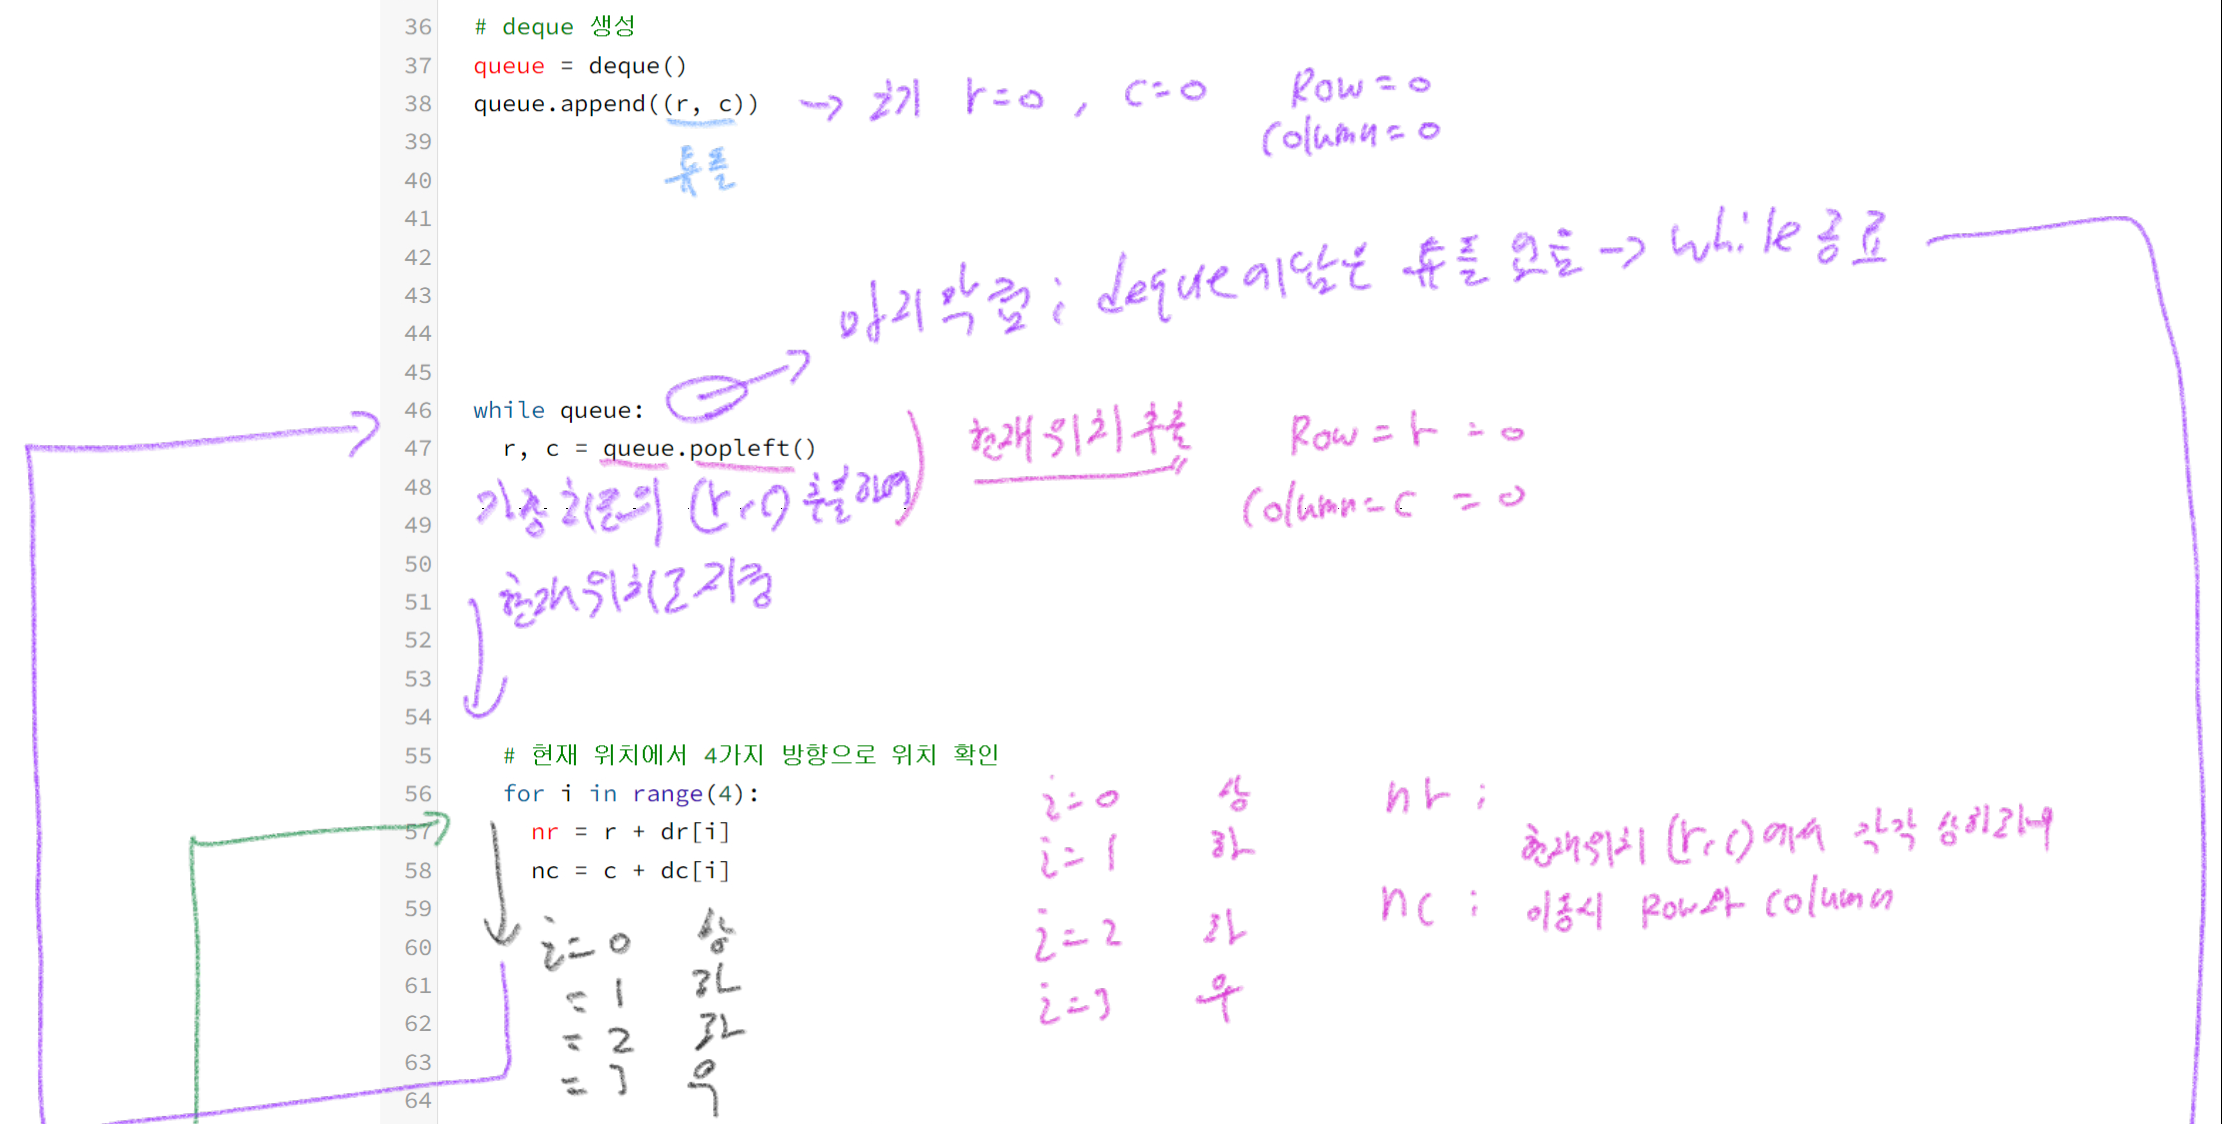 36 # deque 생성
37 queue = deque()
38 queue.append((r, c)) → 초기 r=0 , c=0 Row=0
39 Column=0
40 튜플
41
42
마지막 줄 ; deque에 담은 튜플 요소 → while 종료
43
44
45
46 while queue:
47 r, c = queue.popleft() 현재위치 추출 Row = r = 0
48 가장 왼쪽의 (r,c) 추출하여
49 Column = c = 0
50
51 현재위치로 지정
52
53
54
55 # 현재 위치에서 4가지 방향으로 위치 확인
56 for i in range(4): i=0 상 nr ;
57 nr = r + dr[i] i=1 하 현재위치 (r,c)에서 각각 상하좌우
58 nc = c + dc[i]
59 nc ; 이동시 Row와 Column
60 i=0 상 i=2 좌
61 =1 하 i=3 우
62 =2 좌
63 =3 우
64